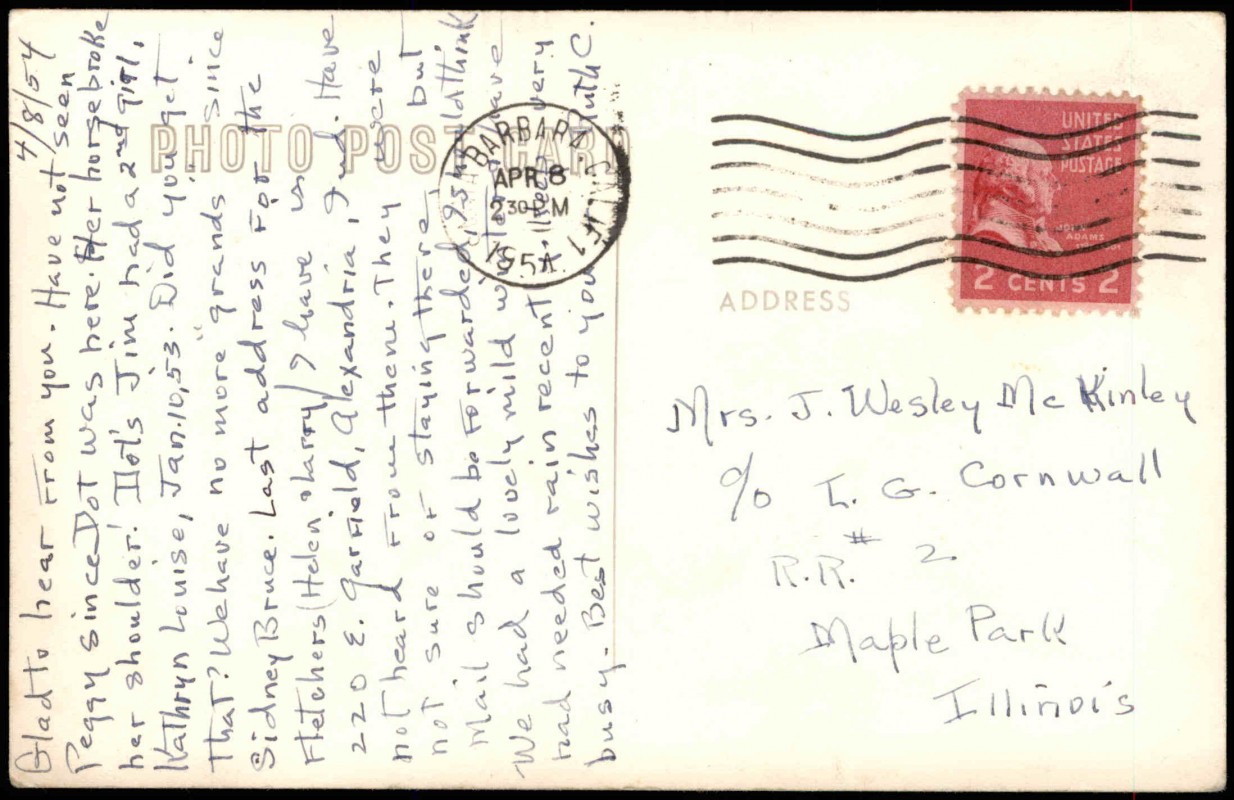 4/8/54
Glad to hear from you. Have not seen
Peggy since Dot was here. Her horse broke
her shoulder! Dot's Jim had a 2nd girl,
Kathryn Louise, Jan. 10, 53. Did you get
that? We have no more "grands" since
Sidney Bruce. Last address for the
Fletchers (Helen & Larry) I have is
220 E. Garfield, Alexandria, Ind. Have
not heard from them. They were
not sure of staying there, but
mail should be forwarded, I should think
We had a lovely mild winter have
had needed rain recently. Keep very
busy. Best wishes to you Ruth C.
PHOTO POST CARD
BARBARA CALIF.
APR 8
2 30 PM
1954
UNITED
STATES
POSTAGE
JOHN
ADAMS
2 CENTS 2
ADDRESS
Mrs. J. Wesley McKinley
c/o L. G. Cornwall
R.R. # 2
Maple Park
Illinois